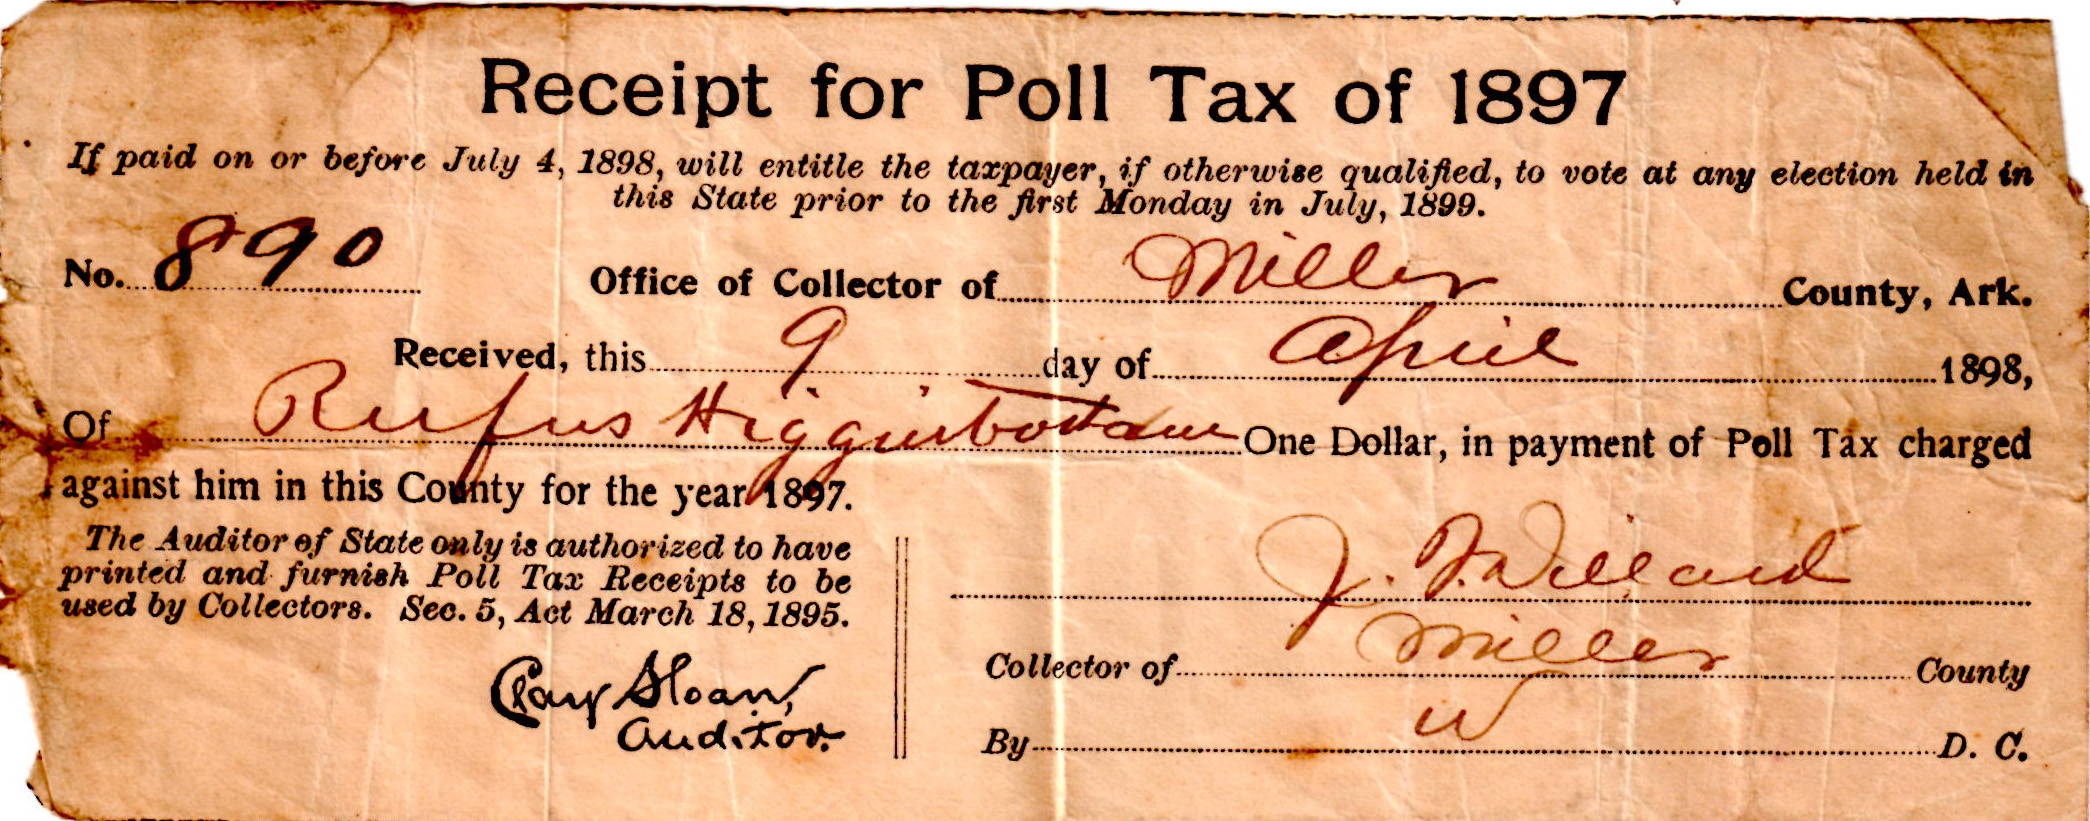 Receipt for Poll Tax of 1897
If paid on or before July 4, 1898, will entitle the taxpayer, if otherwise qualified, to vote at any election held in
this State prior to the first Monday in July, 1899.
No. 890 Office of Collector of Miller County, Ark.
Received, this 9 day of April 1898,
Of Rufus Higginbottam One Dollar, in payment of Poll Tax charged
against him in this County for the year 1897.
The Auditor of State only is authorized to have
printed and furnish Poll Tax Receipts to be
used by Collectors. Sec. 5, Act March 18, 1895.
Clay Sloan,
Auditor.
J. F. Willard
Collector of Miller County
By W D. C.